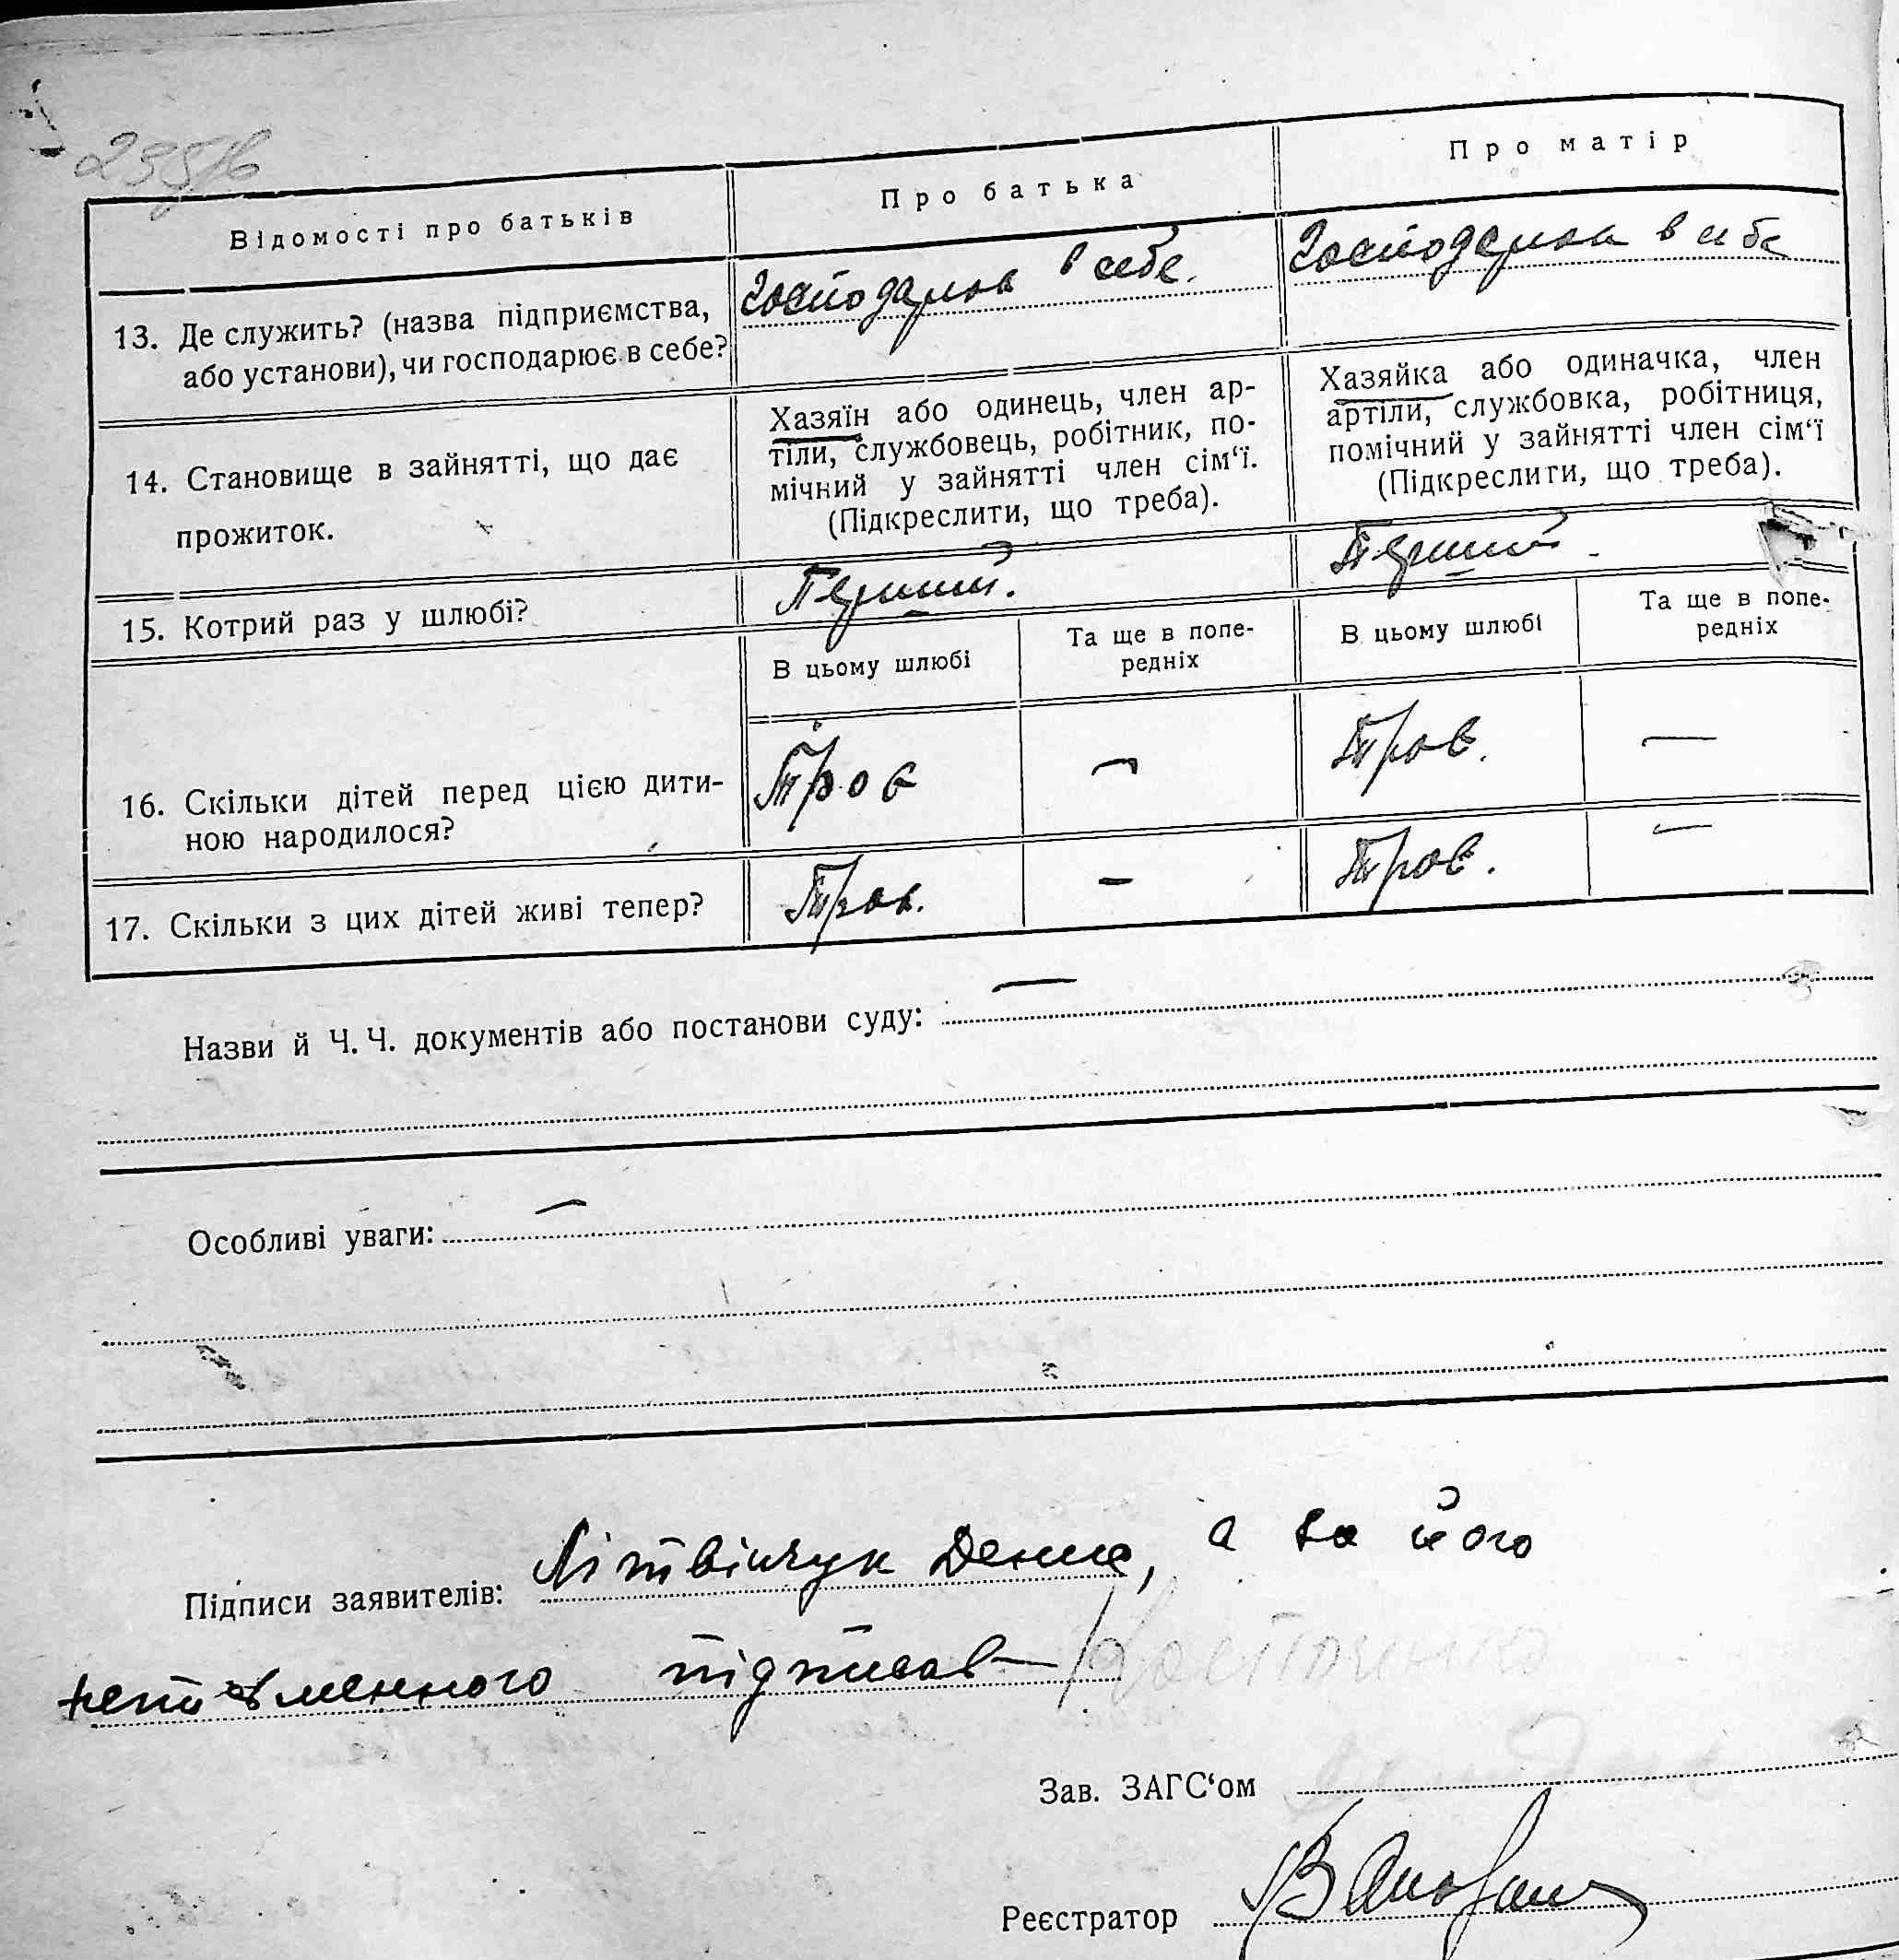 Відомості про батьків
Про батька
Про матір
13. Де служить? (назва підприємства,
або установи), чи господарює в себе?
в себе.
в себе
14. Становище в зайнятті, що дає
прожиток.
Хазяїн або одинець, член ар-
тіли, службовець, робітник, по-
мічний у зайнятті член сім‘ї.
(Підкреслити, що треба).
Хазяйка або одиначка, член
артіли, службовка, робітниця,
помічний у зайнятті член сім‘ї
(Підкреслити, що треба).
15. Котрий раз у шлюбі?
Перший.
Перший
В цьому шлюбі
Та ще в попе-
редніх
В цьому шлюбі
Та ще в попе-
редніх
16. Скільки дітей перед цією дити-
ною народилося?
Троє
—
Троє.
—
17. Скільки з цих дітей живі тепер?
Троє.
—
Троє.
—
Назви й Ч. Ч. документів або постанови суду: —
Особливі уваги: —
Підписи заявителів: Літвінчук Денис, а за його
неписьменного підписав
Зав. ЗАГС‘ом
Реєстратор